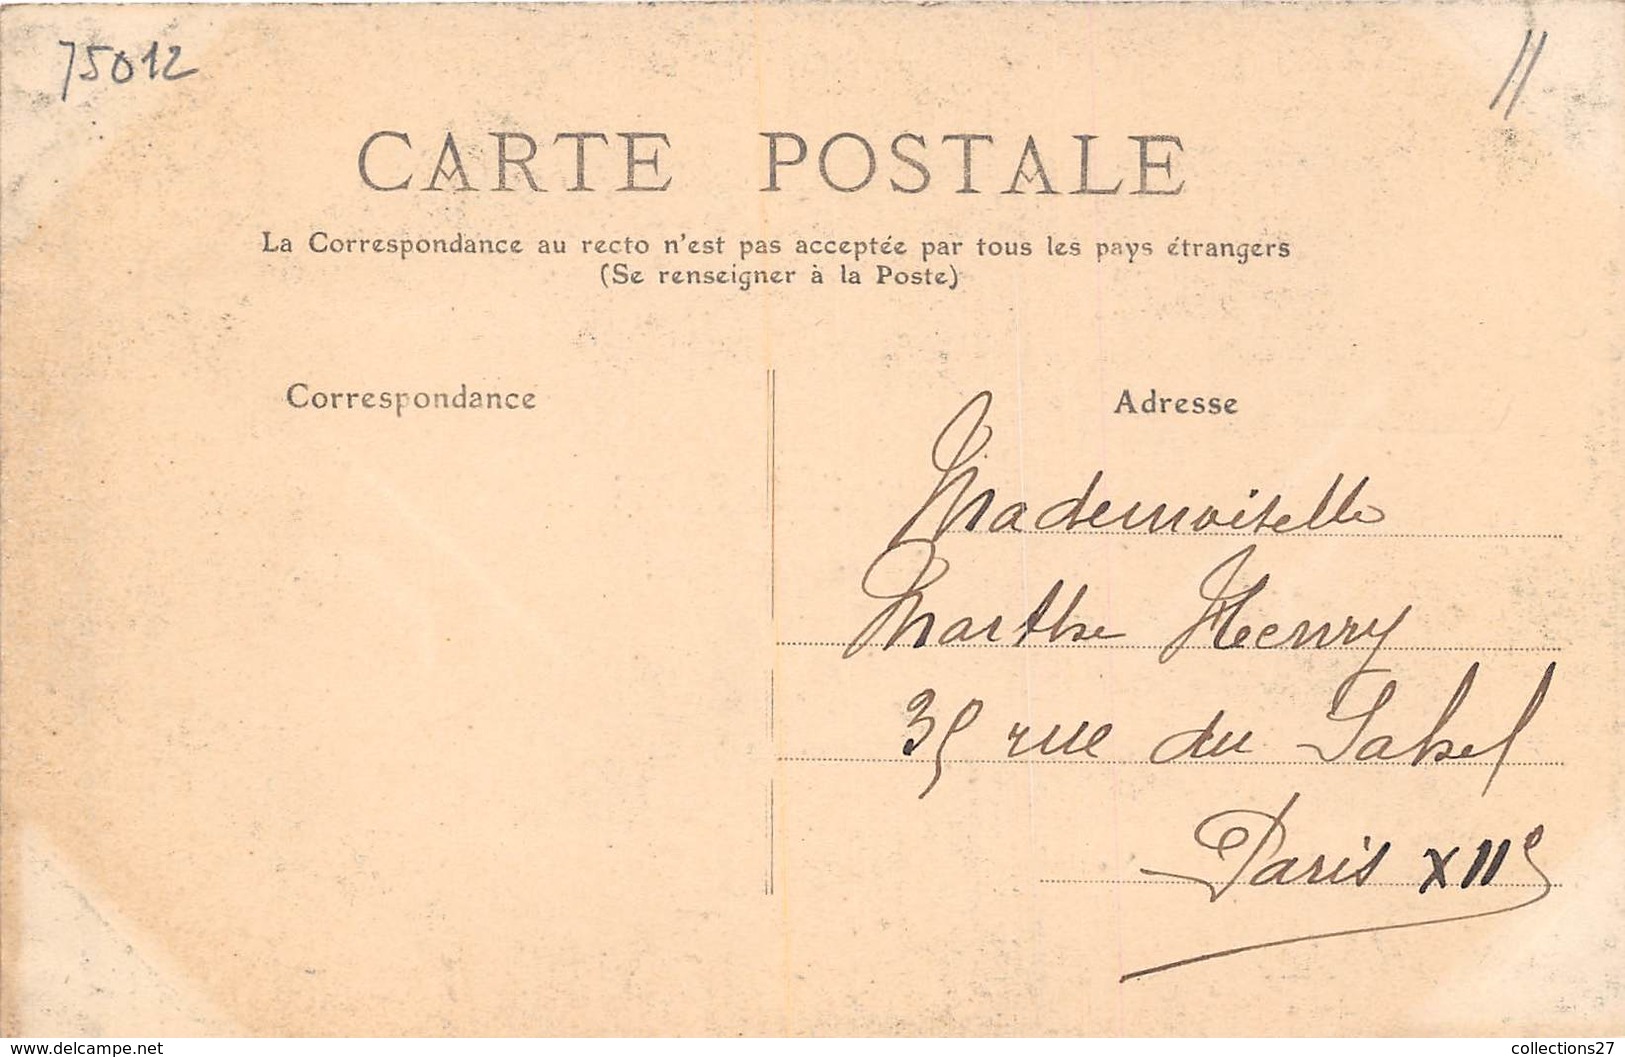 75012
11
CARTE POSTALE
La Correspondance au recto n'est pas acceptée par tous les pays étrangers
(Se renseigner à la Poste)
Correspondance
Adresse
Mademoiselle
Marthe Henry
35 rue du Sahel
Paris XIIe
www.delcampe.net
collections27